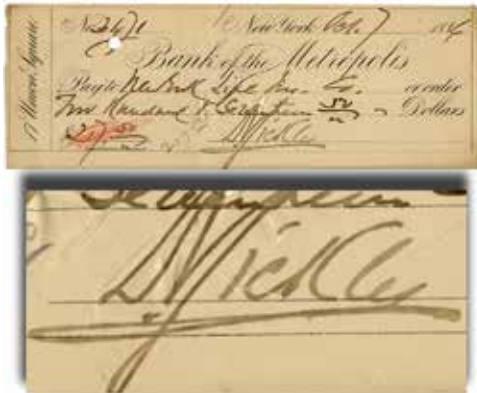 17 Union Square
No. 2471 New York Oct. 7 1884
Bank of the Metropolis
Pay to New York Life Ins. Co. or order
Two Hundred & Seventeen 50 Dollars
217.50
D Sickles
Seventeen
D Sickles